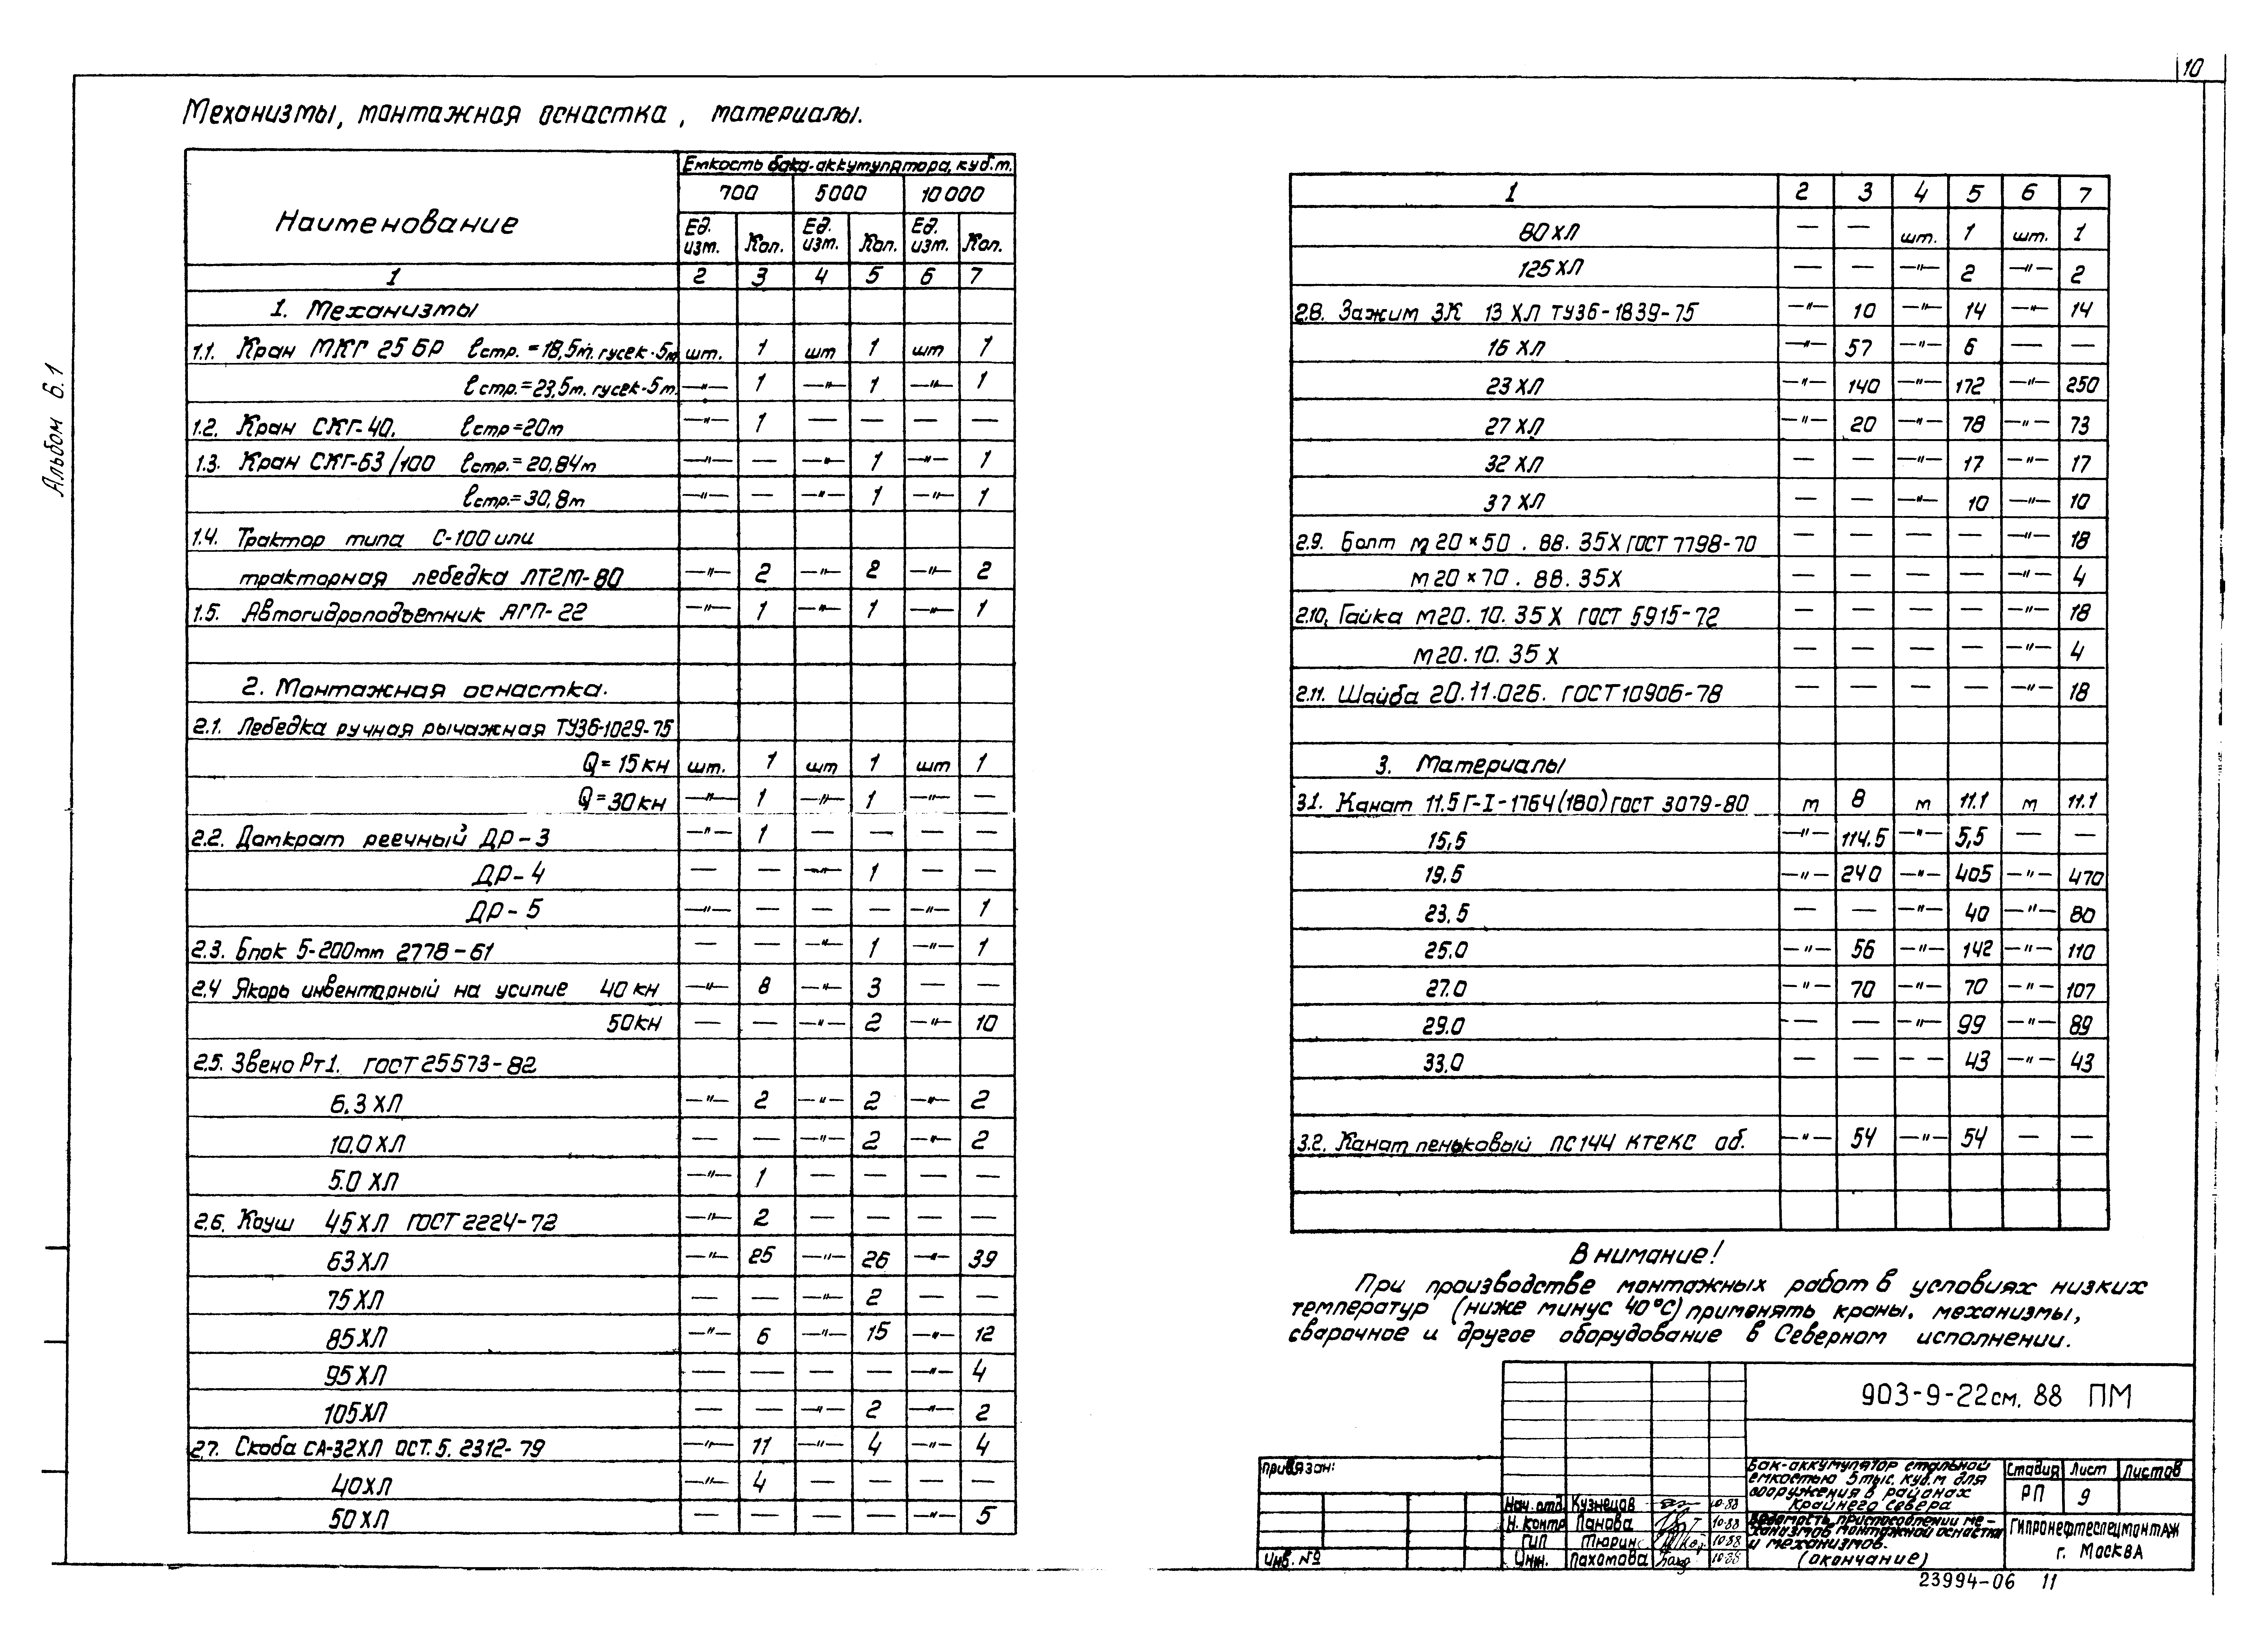 10
Альбом 6.1
Механизмы, монтажная оснастка, материалы.
Наименование | Емкость бака-аккумулятора, куб.м.
700 | 5000 | 10000
Ед. изм. | Кол. | Ед. изм. | Кол. | Ед. изм. | Кол.
1 | 2 | 3 | 4 | 5 | 6 | 7
1. Механизмы
1.1. Кран МКГ 25 БР ℓстр. = 18,5м. гусек-5м | шт. | 1 | шт | 1 | шт | 1
ℓстр. = 23,5м. гусек-5м. | —"— | 1 | —"— | 1 | —"— | 1
1.2. Кран СКГ-40. ℓстр = 20м | —"— | 1 | — | — | — | —
1.3. Кран СКГ-63/100 ℓстр. = 20,84м | —"— | — | —"— | 1 | —"— | 1
ℓстр. = 30,8м | —"— | — | —"— | 1 | —"— | 1
1.4. Трактор типа С-100 или
тракторная лебедка ЛТ2М-80 | —"— | 2 | —"— | 2 | —"— | 2
1.5. Автогидроподъемник АГП-22 | —"— | 1 | —"— | 1 | —"— | 1
2. Монтажная оснастка.
2.1. Лебедка ручная рычажная ТУ36-1029-75
Q = 15 кн | шт. | 1 | шт | 1 | шт | 1
Q = 30 кн | —"— | 1 | —"— | 1 | —"— | —
2.2. Домкрат реечный ДР-3 | —"— | 1 | — | — | — | —
ДР-4 | — | — | —"— | 1 | — | —
ДР-5 | —"— | — | — | — | —"— | 1
2.3. Блок 5-200мм 2778-61 | — | — | —"— | 1 | —"— | 1
2.4 Якорь инвентарный на усилие 40 кн | —"— | 8 | —"— | 3 | — | —
50 кн | — | — | —"— | 2 | —"— | 10
2.5. Звено Рт1. ГОСТ 25573-82
6.3 ХЛ | —"— | 2 | —"— | 2 | —"— | 2
10.0 ХЛ | — | — | —"— | 2 | —"— | 2
5.0 ХЛ | —"— | 1 | — | — | — | —
2.6. Коуш 45 ХЛ ГОСТ 2224-72 | —"— | 2 | — | — | — | —
63 ХЛ | —"— | 26 | —"— | 26 | —"— | 39
75 ХЛ | — | — | —"— | 2 | — | —
85 ХЛ | —"— | 6 | —"— | 15 | —"— | 12
95 ХЛ | — | — | — | — | —"— | 4
105 ХЛ | — | — | —"— | 2 | —"— | 2
2.7. Скоба СА-32ХЛ ОСТ. 5. 2312-79 | —"— | 11 | —"— | 4 | —"— | 4
40 ХЛ | —"— | 4 | — | — | — | —
50 ХЛ | — | — | — | — | —"— | 5
1 | 2 | 3 | 4 | 5 | 6 | 7
80 ХЛ | — | — | шт. | 1 | шт. | 1
125 ХЛ | — | — | —"— | 2 | —"— | 2
2.8. Зажим ЗК 13 ХЛ ТУ36-1839-75 | —"— | 10 | —"— | 14 | —"— | 14
16 ХЛ | —"— | 57 | —"— | 6 | — | —
23 ХЛ | —"— | 140 | —"— | 172 | —"— | 250
27 ХЛ | —"— | 20 | —"— | 78 | —"— | 73
32 ХЛ | — | — | —"— | 17 | —"— | 17
37 ХЛ | — | — | —"— | 10 | —"— | 10
2.9. Болт м 20×50 . 88. 35Х ГОСТ 7798-70 | — | — | — | — | —"— | 18
м 20×70 . 88. 35Х | — | — | — | — | —"— | 4
2.10. Гайка м20. 10. 35 Х ГОСТ 5915-72 | — | — | — | — | —"— | 18
м20. 10. 35 Х | — | — | — | — | —"— | 4
2.11. Шайба 20.11.026. ГОСТ 10906-78 | — | — | — | — | —"— | 18
3. Материалы
3.1. Канат 11.5 Г-I-1764(180) ГОСТ 3079-80 | м | 8 | м | 11.1 | м | 11.1
15,5 | —"— | 114.5 | —"— | 5,5 | — | —
19.5 | —"— | 240 | —"— | 405 | —"— | 470
23.5 | — | — | —"— | 40 | —"— | 80
25.0 | —"— | 56 | —"— | 142 | —"— | 110
27.0 | —"— | 70 | —"— | 70 | —"— | 107
29.0 | — | — | —"— | 99 | —"— | 89
33.0 | — | — | — — | 43 | —"— | 43
3.2. Канат пеньковый ПС 144 КТЕКС об. | —"— | 54 | —"— | 54 | — | —
Внимание!
При производстве монтажных работ в условиях низких
температур (ниже минус 40°С) применять краны, механизмы,
сварочное и другое оборудование в Северном исполнении.
903-9-22см. 88 ПМ
Привязан:
Инв. №
Нач. отд. Кузнецов 10.88
Н. контр Панова 10.88
ГИП Тюрин 10.88
Инж. Пахомова 10.88
Бак-аккумулятор стальной
емкостью 5 тыс. куб.м для
сооружения в районах
Крайнего севера
Стадия | Лист | Листов
РП | 9
Ведомость приспособлений ме-
ханизмов монтажной оснастки
и механизмов.
(окончание)
Гипронефтеспецмонтаж
г. Москва
23994-06 11